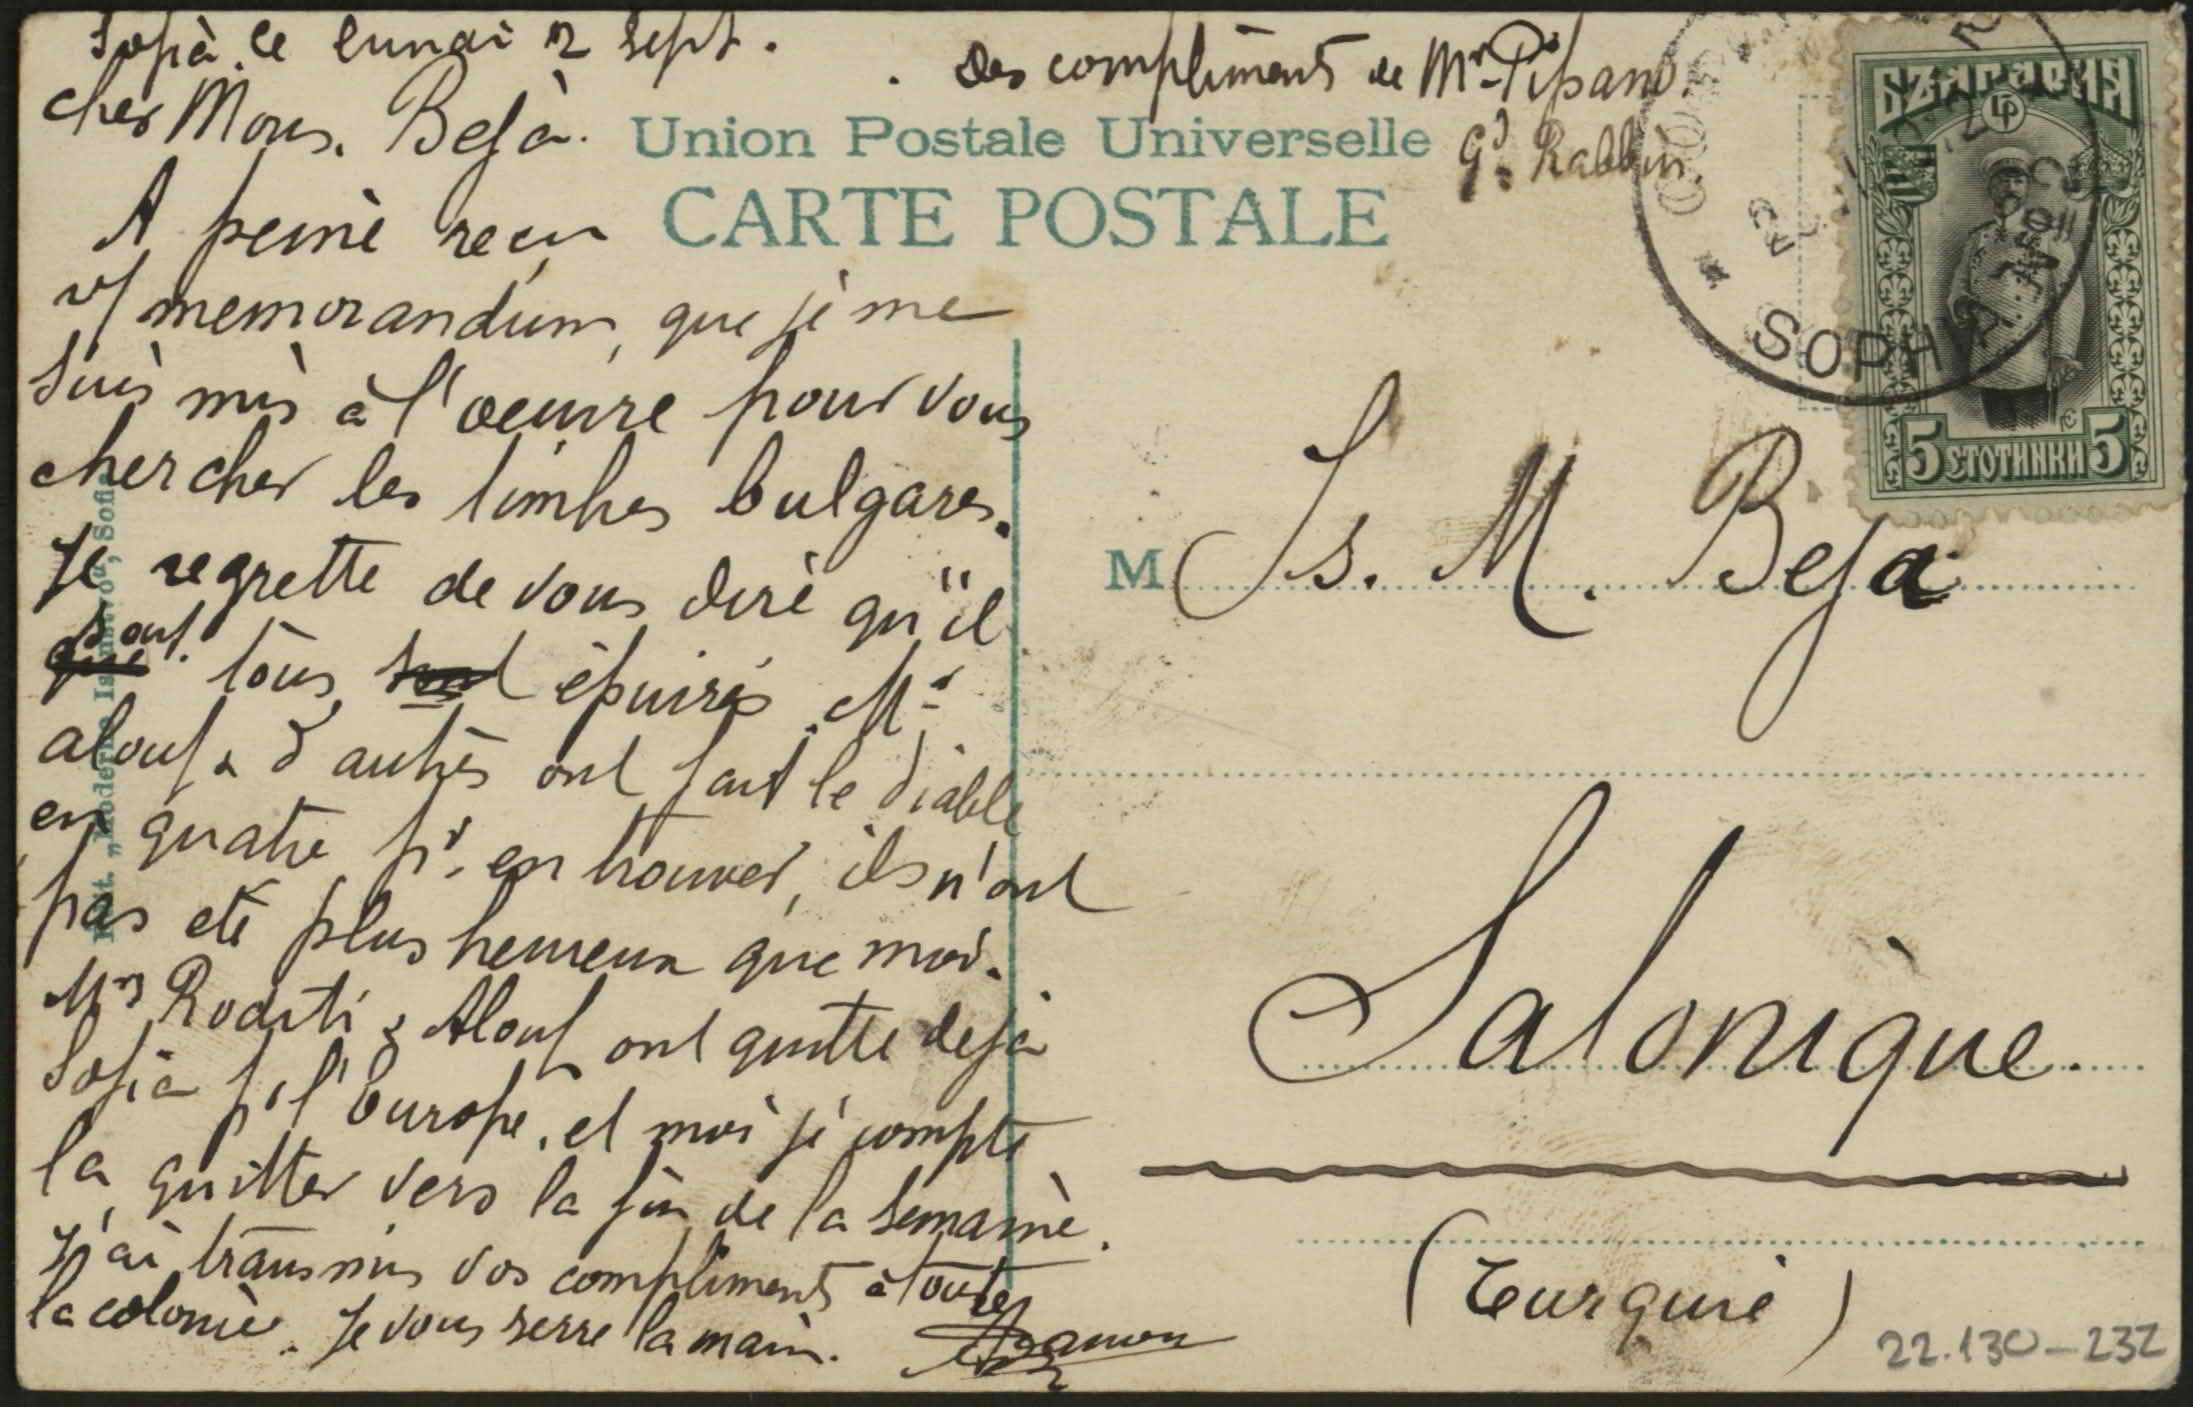 Sofià, ce lundi 2 Sept.
Des compliments de Mr Pipano.
Gd Rabbin.
cher Mons. Beja.
Union Postale Universelle
CARTE POSTALE
A peine reçu
v/ memorandum, que je me
suis mis à l'oeuvre pour vous
chercher les timbres bulgares.
Je regrette de vous dire qu'il
sont tous épuisés. Mr
Alouf & d'autres ont fait le diable
en quatre pr. en trouver, ils n'ont
pas eté plus heureux que moi.
Mrs Roditi & Alouf ont quitté deja
Sofia p. l'Europe, et moi je compte
la quitter vers la fin de la semaine.
J'ai transmis vos compliments à toute
la colonie. Je vous serre la main.
M Is. M. Beja
Salonique.
(Turquie)
SOPHIA
БЪЛГАРИЯ
5 СТОТИНКИ 5
22.130-232